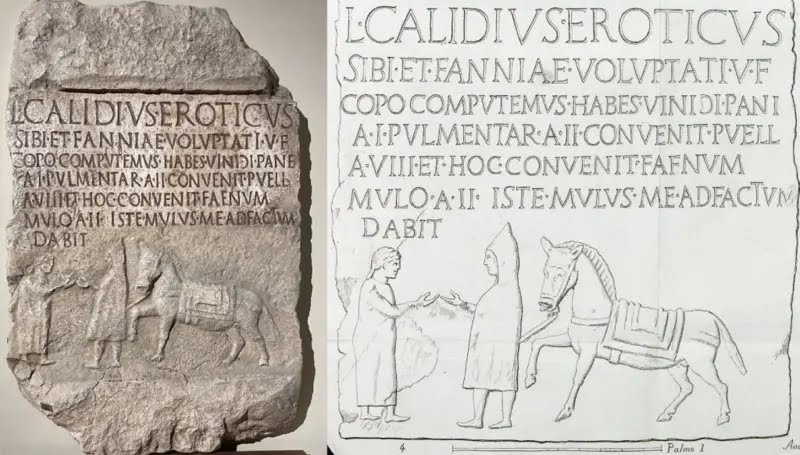 L·CALIDIVS·EROTICVS
SIBI·ET·FANNIAE·VOLVPTATI·V·F
COPO COMPVTEMVS·HABES·VINIↃI·PANE
A·I·PVLMENTAR·A·II·CONVENIT·PVELL
A·VIII·ET·HOC·CONVENIT·FAENVM
MVLO·A·II·ISTE·MVLVS·ME·ADFACTVM
DABIT
L·CALIDIVS·EROTICVS
SIBI·ET·FANNIAE·VOLVPTATI·V·F
COPO COMPVTEMVS·HABES·VINIↃI·PANI
A·I·PVLMENTAR·A·II·CONVENIT·PVELL
A·VIII·ET·HOC·CONVENIT·FAFNVM
MVLO·A·II·ISTE·MVLVS·ME·ADFACTVM
DABIT
4 Palmo 1